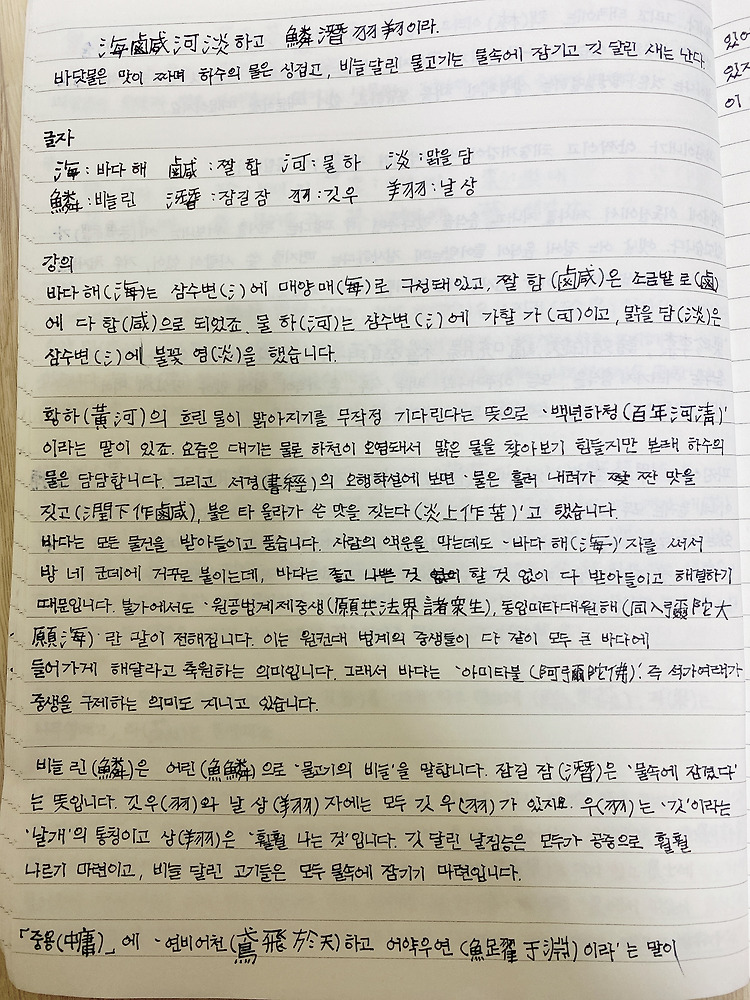 海鹹河淡하고 鱗潛羽翔이라.
바닷물은 맛이 짜며 하수의 물은 싱겁고, 비늘달린 물고기는 물속에 잠기고 깃 달린 새는 난다
글자
海:바다 해 鹹:짤 함 河:물 하 淡:맑을 담
鱗:비늘 린 潛:잠길 잠 羽:깃 우 翔:날 상
강의
바다 해(海)는 삼수변(氵)에 매양 매(每)로 구성돼 있고, 짤 함(鹹)은 조금밭 로(鹵)
에 다 함(咸)으로 되었죠. 물 하(河)는 삼수변(氵)에 가할 가(可)이고, 맑을 담(淡)은
삼수변(氵)에 불꽃 염(淡)을 했습니다.
황하(黃河)의 흐린 물이 맑아지기를 무작정 기다린다는 뜻으로 '백년하청(百年河淸)'
이라는 말이 있죠. 요즘은 대기는 물론 하천이 오염돼서 맑은 물을 찾아보기 힘들지만 본래 하수의
물은 담담합니다. 그리고 서경(書經)의 오행학설에 보면 '물은 흘러 내려가 짠 맛을
짓고(潤下作鹹), 불은 타 올라가 쓴 맛을 짓는다(炎上作苦)'고 했습니다.
바다는 모든 물건을 받아들이고 품습니다. 사람의 액운을 막는데도 '바다 해(海)'자를 써서
방 네 군데에 거꾸로 붙이는데, 바다는 좋고 나쁜 것 할 것 없이 다 받아들이고 해결하기
때문입니다. 불가에서도 '원공법계제중생(願共法界諸衆生), 동입미타대원해(同入彌陀大
願海)'란 말이 전해집니다. 이는 원컨대 법계의 중생들이 다 같이 모두 큰 바다에
들어가게 해달라고 축원하는 의미입니다. 그래서 바다는 '아미타불(阿彌陀佛)'. 즉 석가여래가
중생을 구제하는 의미도 지니고 있습니다.
비늘 린(鱗)은 어린(魚鱗)으로 '물고기의 비늘'을 말합니다. 잠길 잠(潛)은 '물속에 잠겼다'
는 뜻입니다. 깃 우(羽)와 날 상(翔) 자에는 모두 깃 우(羽)가 있지요. 우(羽)는 '깃'이라는
'날개'의 통칭이고 상(翔)은 '훨훨 나는 것'입니다. 깃 달린 날짐승은 모두가 공중으로 훨훨
나르기 마련이고, 비늘 달린 고기들은 모두 물속에 잠기기 마련입니다.
「중용(中庸)」에 '연비어천(鳶飛於天)하고 어약우연(魚躍于淵)이라'는 말이
있어
있지
이